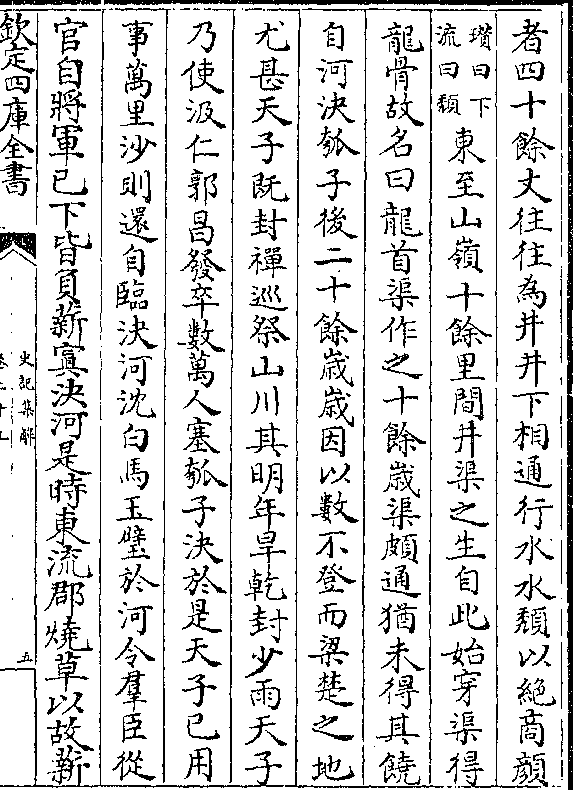 者四十餘丈往往為井井下相通行水水頹以絶商顔
瓚曰下
流曰頹
東至山嶺十餘里間井渠之生自此始穿渠得
龍骨故名曰龍首渠作之十餘歳渠頗通猶未得其饒
自河決瓠子後二十餘歳歳因以數不登而梁楚之地
尤甚天子既封禪巡祭山川其明年旱乾封少雨天子
乃使汲仁郭昌發卒數萬人塞瓠子決於是天子已用
事萬里沙則還自臨決河沈白馬玉璧於河令羣臣從
官自將軍已下皆負薪窴決河是時東流郡燒草以故薪
欽定四庫全書
史記集解
卷二十九
五